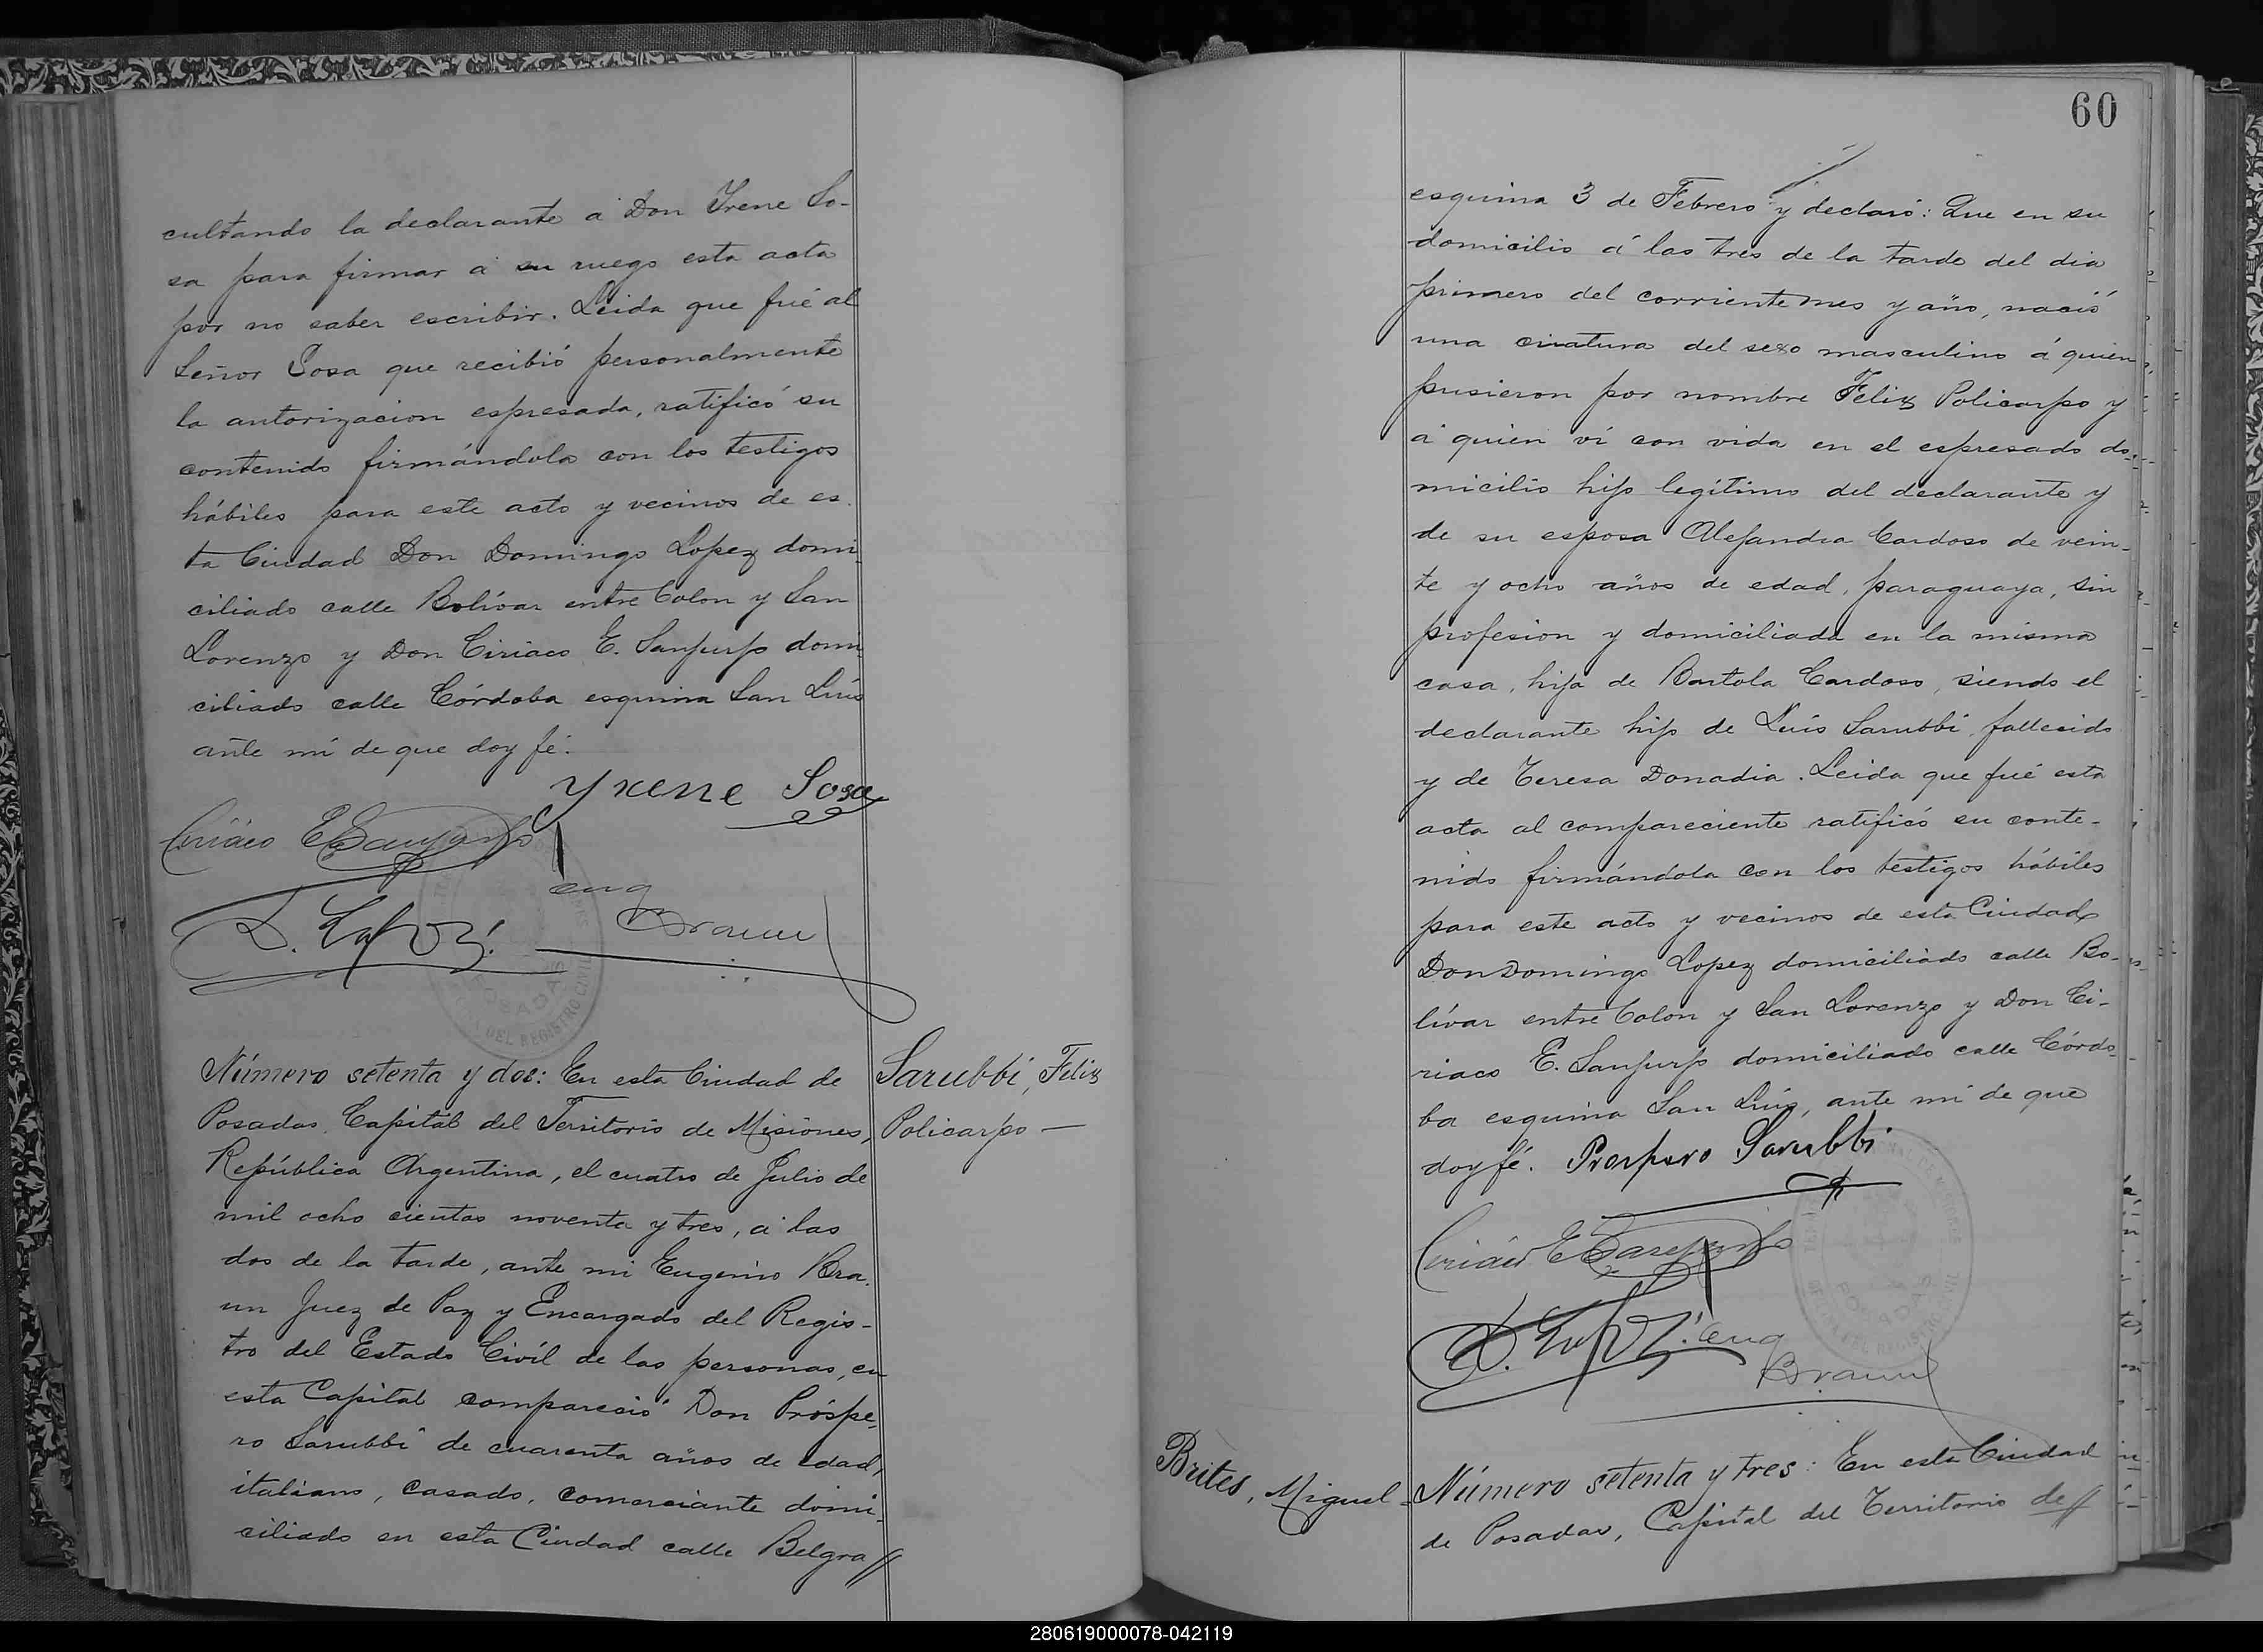 cultando la declarante á Don Yrene So-
sa para firmar á su ruego esta acta
por no saber escribir. Leida que fué al
Señor Sosa que recibió personalmente
la autorizacion espresada, ratificó su
contenido firmándola con los testigos
hábiles para este acto y vecinos de es-
ta Ciudad Don Domingo Lopez domi-
ciliado calle Bolívar entre Colon y San
Lorenzo y Don Ciriaco E. Sanjurjo domi-
ciliado calle Córdoba esquina San Luis
ante mí de que doy fé.
Yrene Sosa
Ciriáco E Sanjurjo
Eug
Braun
D. Lopez
POSADAS
DEL REGISTRO CIVIL
Número setenta y dos: En esta Ciudad de
Posadas, Capital del Territorio de Misiones,
República Argentina, el cuatro de Julio de
mil ocho cientos noventa y tres, á las
dos de la tarde, ante mi Eugenio Bra-
un Juez de Paz y Encargado del Regis-
tro del Estado Civíl de las personas, en
esta Capital compareció Don Próspe-
ro Sarubbi de cuarenta años de edad,
italiano, casado, comerciante domi-
ciliado en esta Ciudad calle Belgra//
Sarubbi, Felix
Policarpo —
60
esquina 3 de Febrero y declaró: Que en su
domicilio á las tres de la tarde del dia
primero del corriente mes y año, nació
una criatura del sexo masculino á quien
pusieron por nombre Felix Policarpo y
á quien ví con vida en el espresado do-
micilio hijo legítimo del declarante y
de su esposa Alejandra Cardoso de vein-
te y ocho años de edad, paraguaya, sin
profesion y domiciliada en la misma
casa, hija de Bartola Cardoso, siendo el
declarante hijo de Luis Sarubbi, fallecido
y de Teresa Donadia. Leida que fué esta
acta al compareciente ratificó su conte-
nido firmándola con los testigos hábiles
para este acto y vecinos de esta Ciudad
Don Domingo Lopez domiciliado calle Bo-
lívar entre Colon y San Lorenzo y Don Ci-
riaco E. Sanjurjo domiciliado calle Córdo-
ba esquina San Luis, ante mi de que
doy fé. Prospero Sarubbi
Ciriáco E Sanjurjo
D. Lopez
Eug
Braun
POSADAS
Brites, Miguel-
Número setenta y tres: En esta Ciudad
de Posadas, Capital del Territorio de//
280619000078-042119